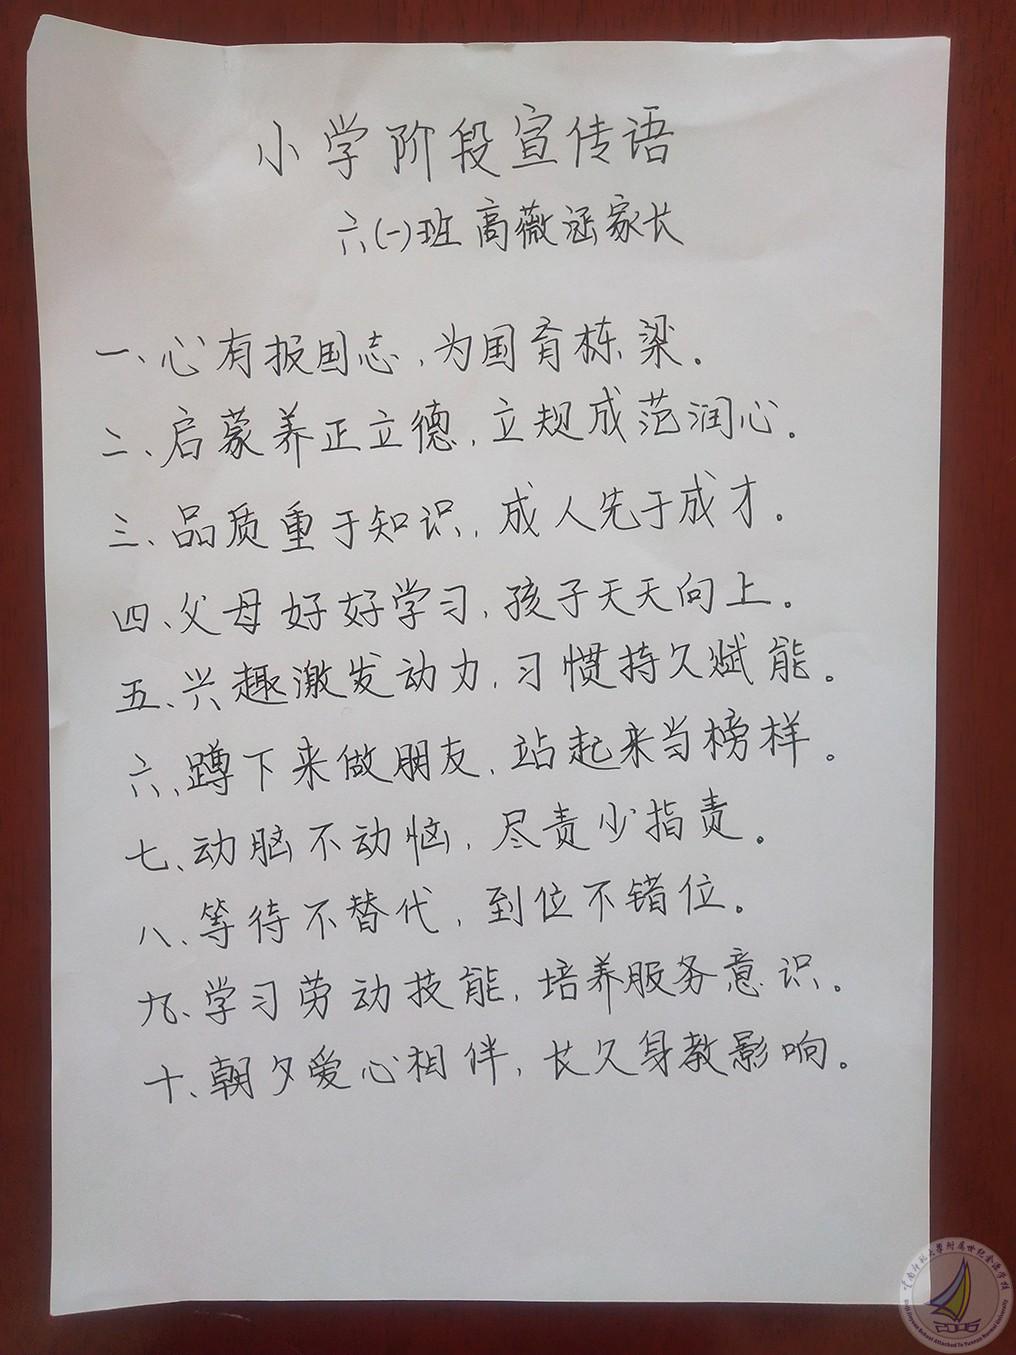 小学阶段宣传语
六(一)班 高薇涵家长
一、心有报国志,为国育栋梁。
二、启蒙养正立德,立规成范润心。
三、品质重于知识,成人先于成才。
四、父母好好学习,孩子天天向上。
五、兴趣激发动力,习惯持久赋能。
六、蹲下来做朋友,站起来当榜样。
七、动脑不动恼,尽责少指责。
八、等待不替代,到位不错位。
九、学习劳动技能,培养服务意识。
十、朝夕爱心相伴,长久身教影响。
2005